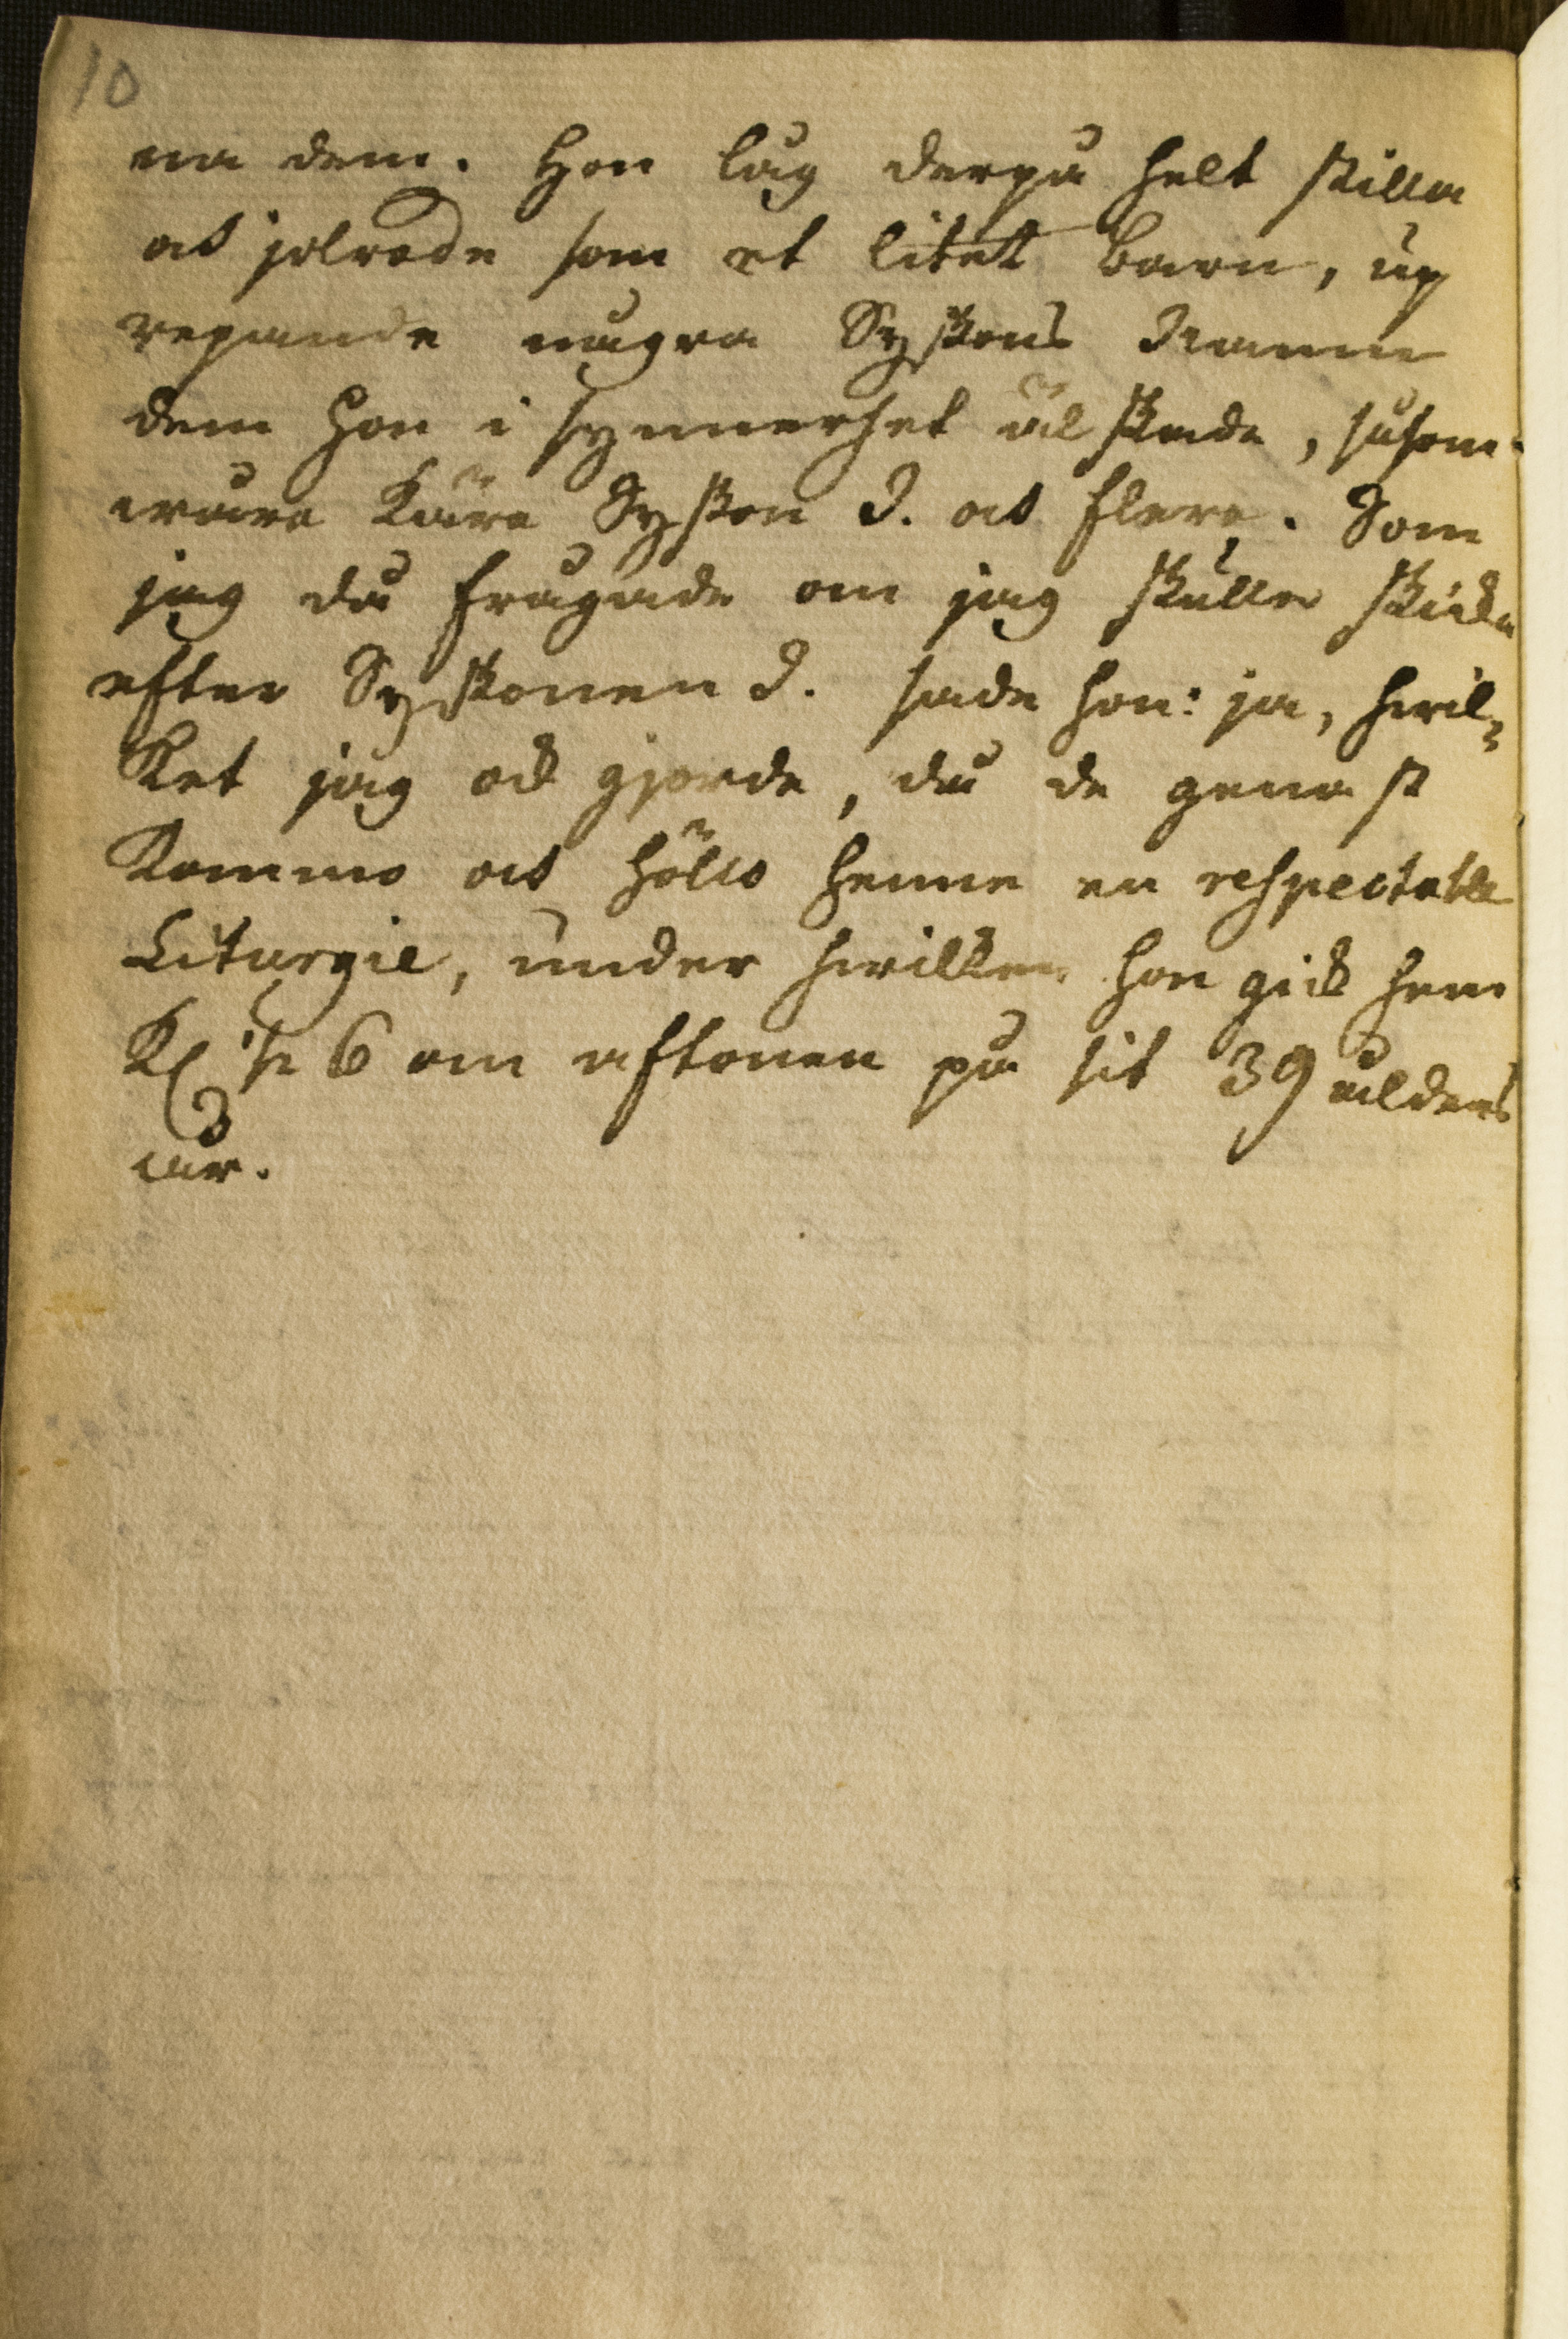 10
na dem. Hon låg derpå helt stilla
och jolrade som et litet barn, up
repande några Syskons Namn
dem hon i synnerhet älskade, såsom
wåra Kära Syskon D. och flere. Som
jag då frågade om jag skulle skicka
efter Syskonen D. sade hon: ja, hwil=
ket jag ock gjorde, då de genast
kommo och höllo henne en respectable
Liturgie, under hwilken hon gick hem
Kl 1/2 6 om aftonen på sit 39 ålders
år.